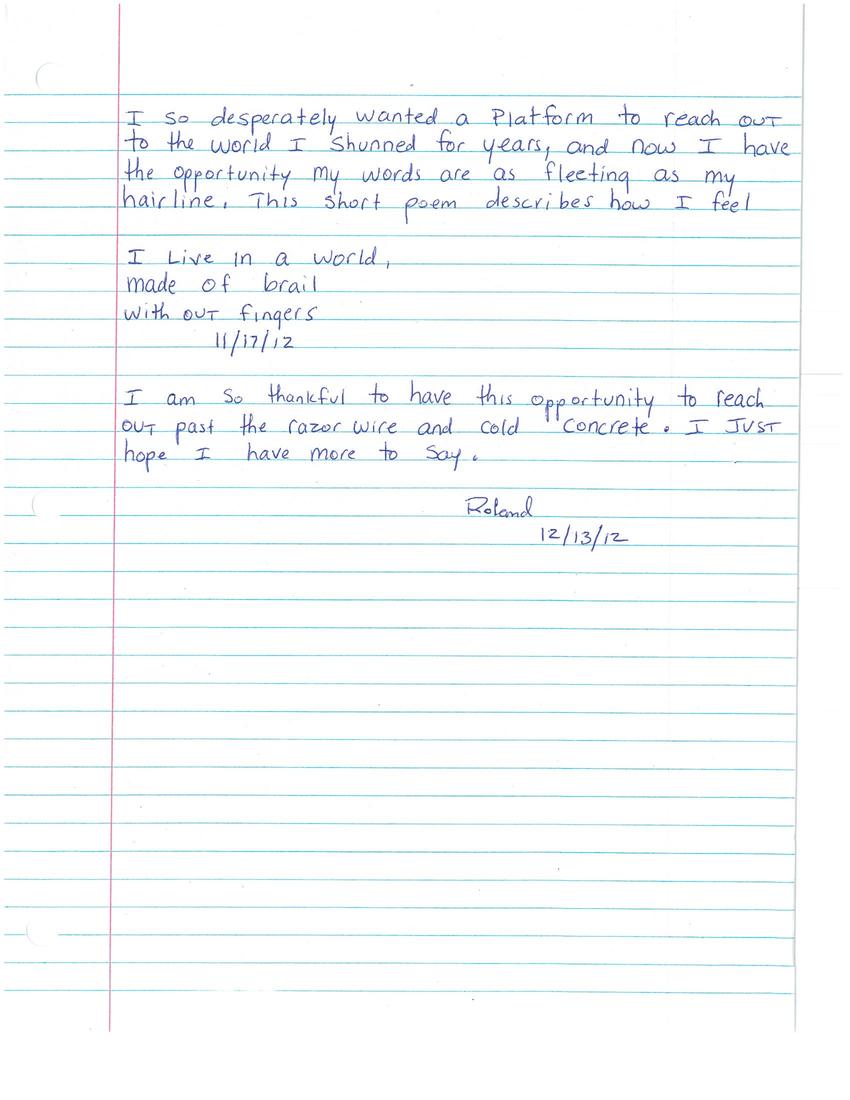 I so desperately wanted a Platform to reach OUT
to the world I shunned for years, and now I have
the opportunity my words are as fleeting as my
hairline. This short poem describes how I feel
I Live in a world,
made of brail
with OUT fingers
11/17/12
I am so thankful to have this opportunity to reach
OUT past the razor wire and cold concrete. I JUST
hope I have more to say.
Roland
12/13/12